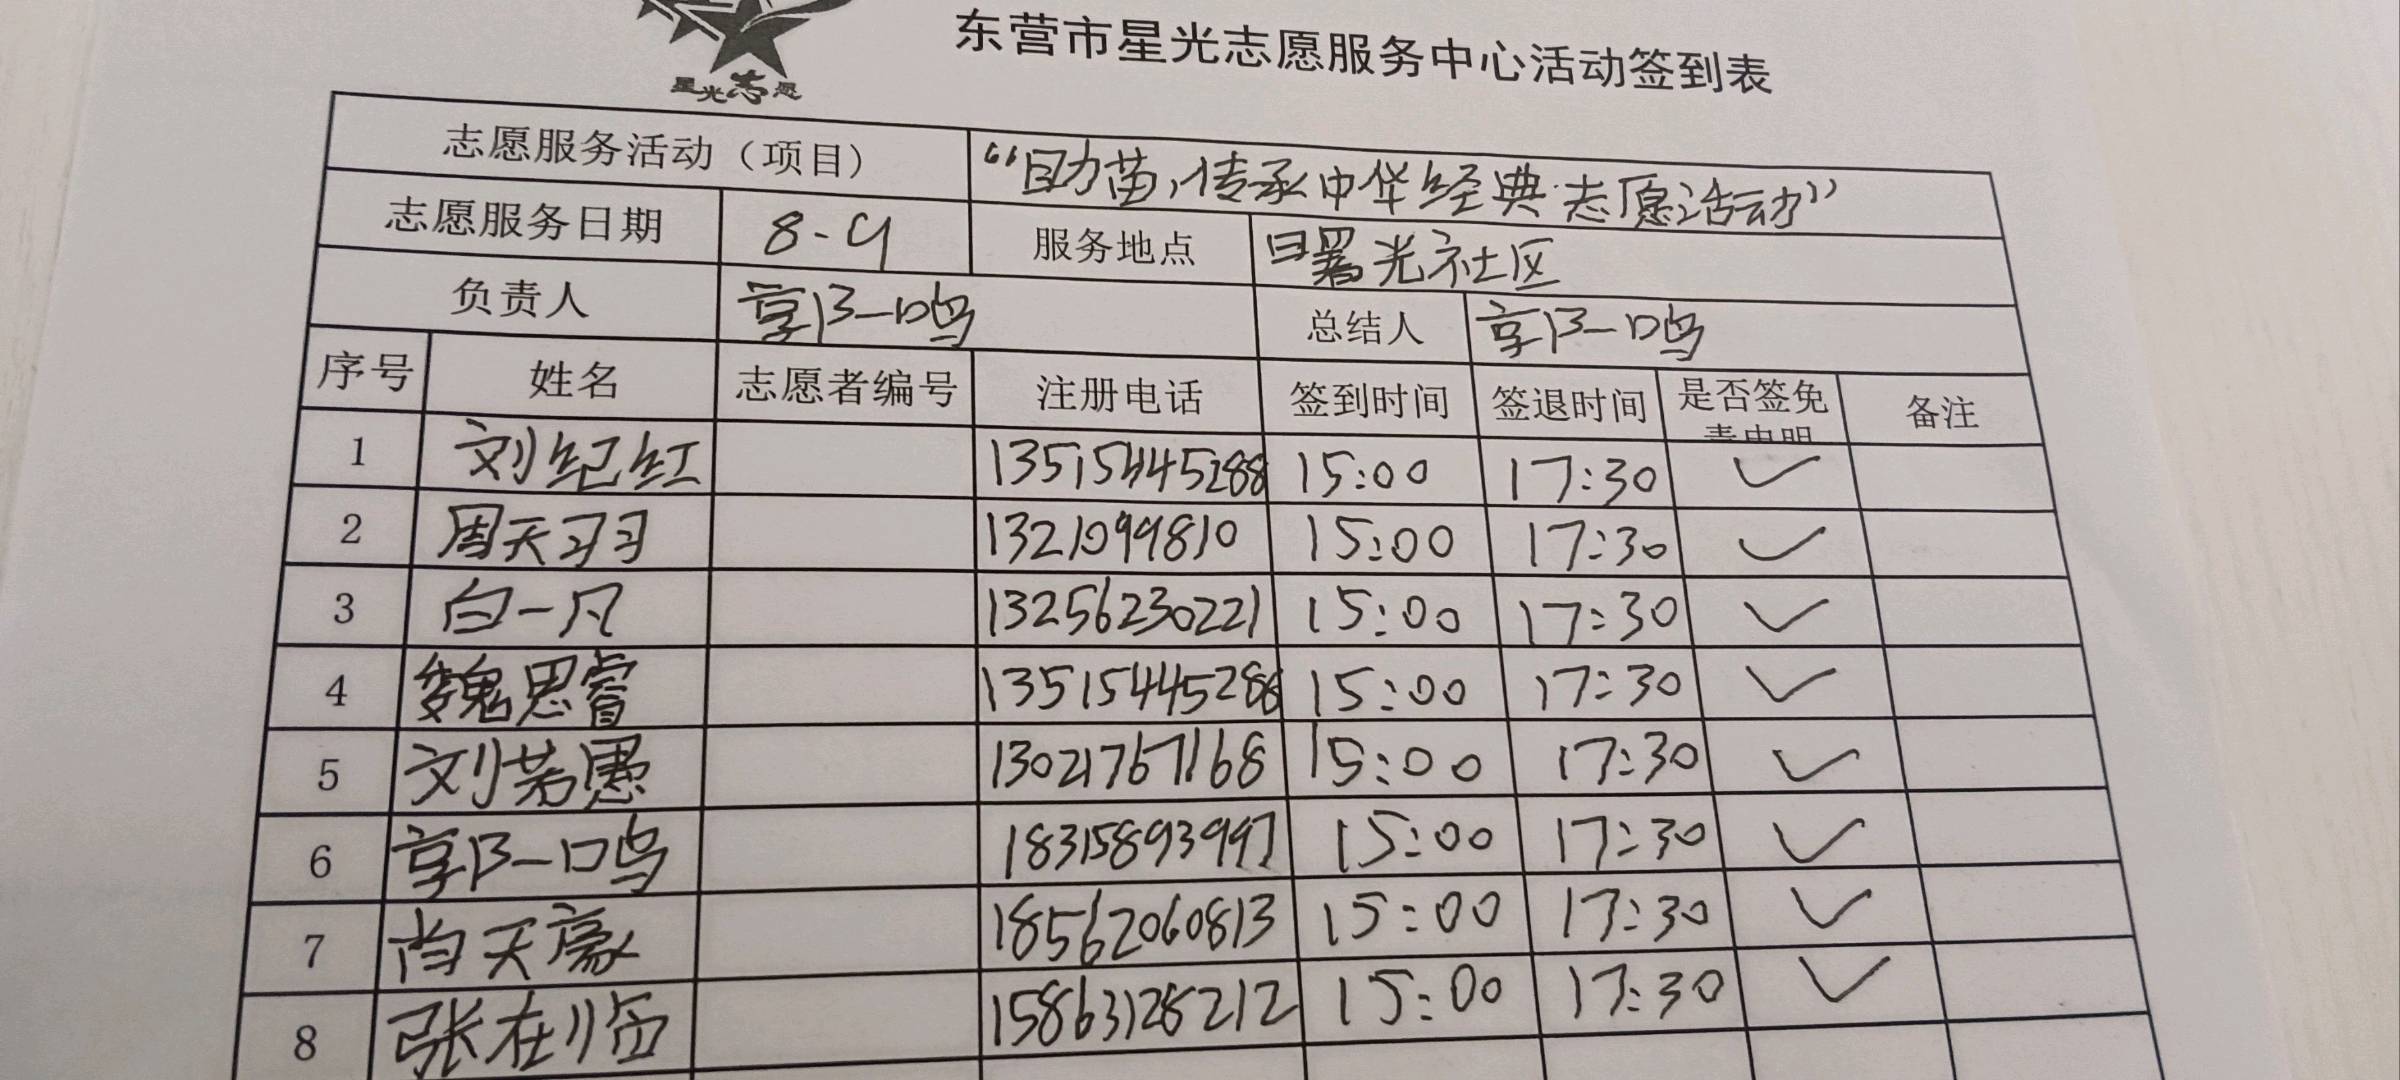 星光志愿
东营市星光志愿服务中心活动签到表
志愿服务活动（项目） “助苗,传承中华经典·志愿活动”
志愿服务日期 8-9 服务地点 曙光社区
负责人 郭一鸣 总结人 郭一鸣
序号 姓名 志愿者编号 注册电话 签到时间 签退时间 是否签免责申明 备注
1 刘纪红 13515445288 15:00 17:30 ✓
2 周天习习 1321099810 15:00 17:30 ✓
3 白一凡 13256230221 15:00 17:30 ✓
4 魏思睿 13515445286 15:00 17:30 ✓
5 刘若愚 13021767168 15:00 17:30 ✓
6 郭一鸣 18315893997 15:00 17:30 ✓
7 尚天豪 18562060813 15:00 17:30 ✓
8 张在临 15863128212 15:00 17:30 ✓